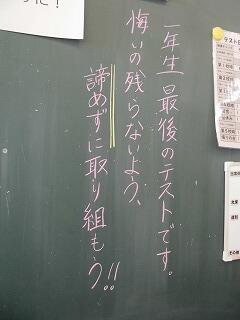 に!
一年生 最後のテストです。
悔いの残らないよう、
諦めずに取り組もう!!